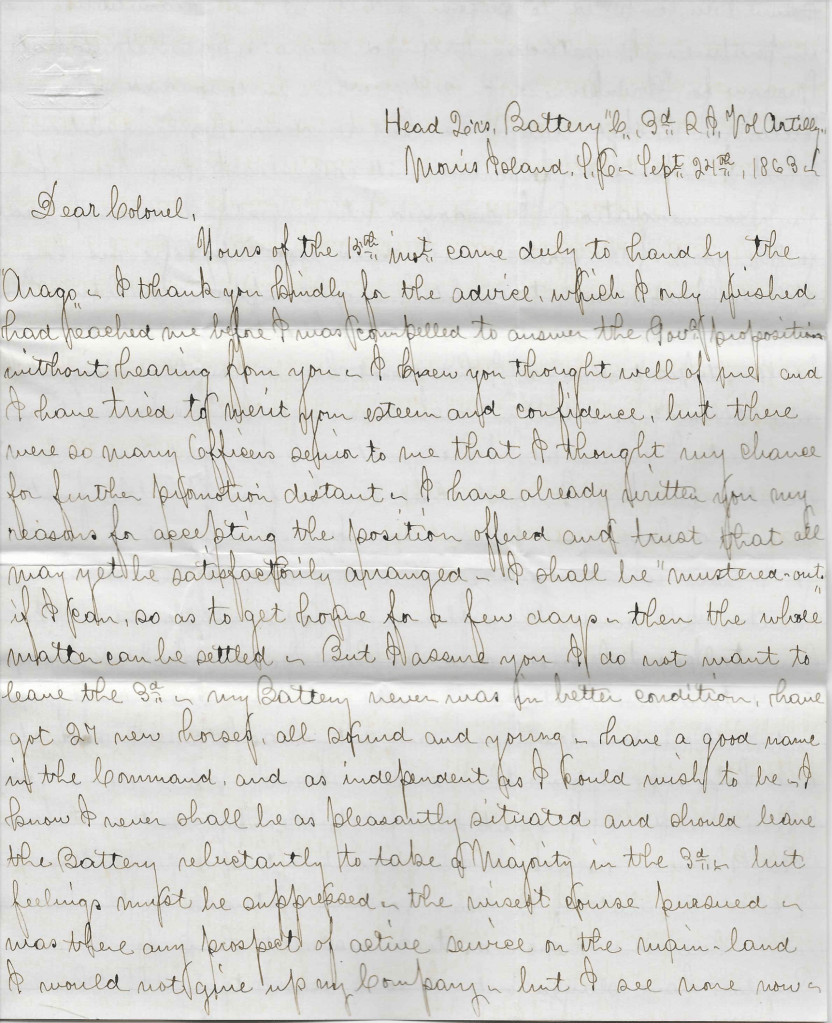 Head Qrs, Battery "C", 3d R I, Vol Artilly,
Morris Island, S.C. Sept 24th, 1863
Dear Colonel,
Yours of the 13th inst came duly to hand by the
"Arago" - I thank you kindly for the advice, which I only wished
had reached me before I was compelled to answer the Govs proposition
without hearing from you - I knew you thought well of me and
I have tried to merit your esteem and confidence, but there
were so many Officers senior to me that I thought my chance
for further promotion distant - I have already written you my
reasons for accepting the position offered and trust that all
may yet be satisfactorily arranged - I shall be "mustered-out"
if I can, so as to get home for a few days - then the whole
matter can be settled - But I assure you I do not want to
leave the 3d - my Battery never was in better condition, have
got 27 new horses, all sound and young - have a good name
in the Command, and as independent as I could wish to be - I
know I never shall be as pleasantly situated and should leave
the Battery reluctantly to take a Majority in the 3d - but
feelings must be suppressed - the wisest course pursued -
was there any prospect of active service on the main-land
I would not give up my Company - but I see none now -